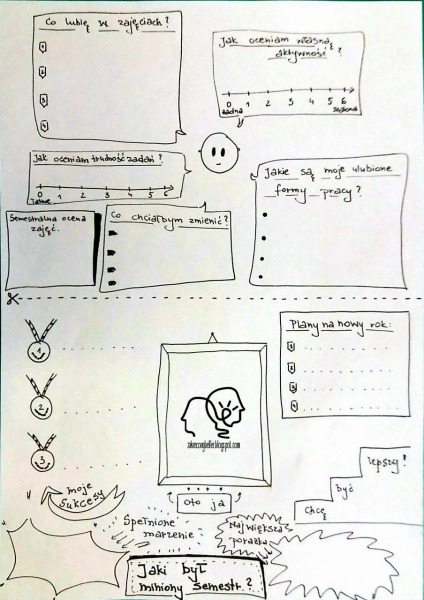 Co lubię w zajęciach?
1
2
3
4
Jak oceniam własną
aktywność?
0 1 2 3 4 5 6
żadna
Jak oceniam trudność zadań?
0 1 2 3 4 5 6
łatwe
Jakie są moje ulubione
formy pracy?
Semestralna ocena
zajęć.
Co chciałbym zmienić?
Plany na nowy rok:
1
2
3
4
1
2
3
moje
sukcesy
oto ja
lepszy!
być
Chcę
Spełnione
marzenie
Największa
porażka
Jaki był
miniony semestr?